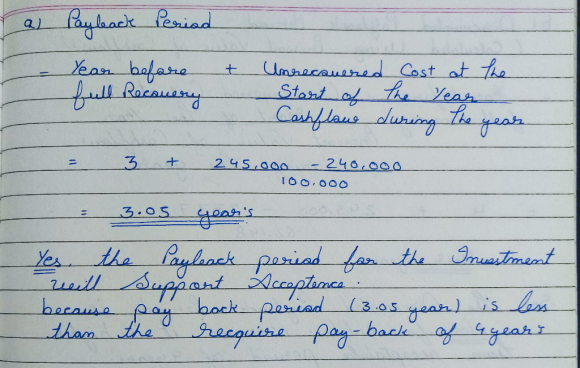 a) Payback Period
= Year before full Recovery + Unrecovered Cost at the Start of the Year
Cashflow during the year
= 3 + 245,000 - 240,000
100,000
= 3.05 year's
Yes. the Payback period for the Investment
will Support Acceptence.
because pay back period (3.05 year) is less
than the recquire pay-back of 4 year's